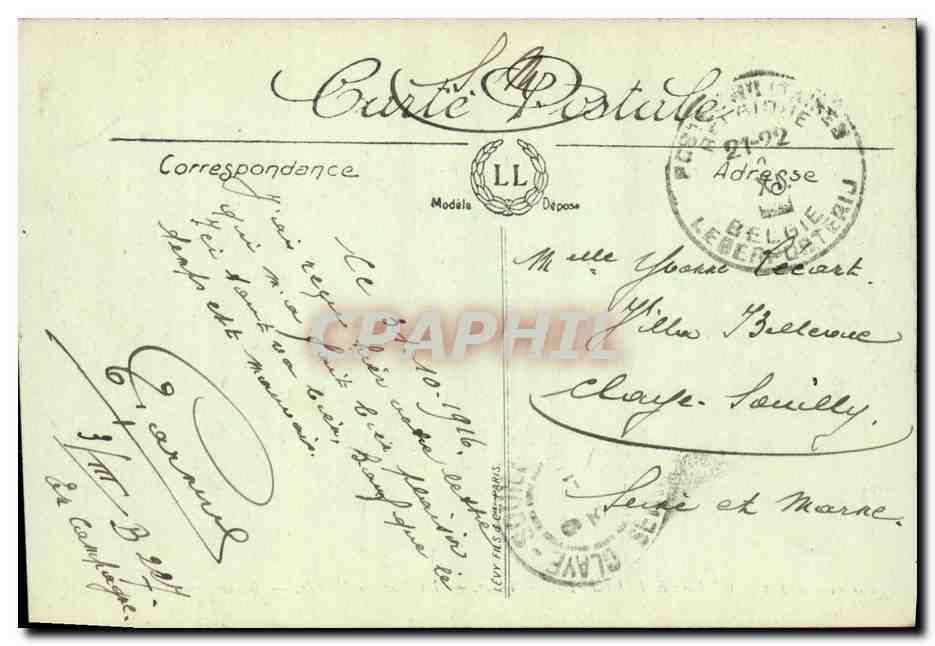 S.M.
Carte Postale
Correspondance
LL
Modèle Déposé
Adresse
POSTES MILITAIRES
BELGIQUE
21-22
BELGIE
LEGERPOSTERIJ
Ce 3 10-1916.
J'ai reçu hier votre lettre
qui m'a fait bien plaisir
Ici tout va bien, que le
temps est mauvais.
3/III B 227
En Campagne.
Melle Yvonne
Villa Bellevue
Claye-Souilly.
Seine et Marne.
LÉVY FILS & Cie PARIS.
CLAYE-SOUILLY
CPAPHIL